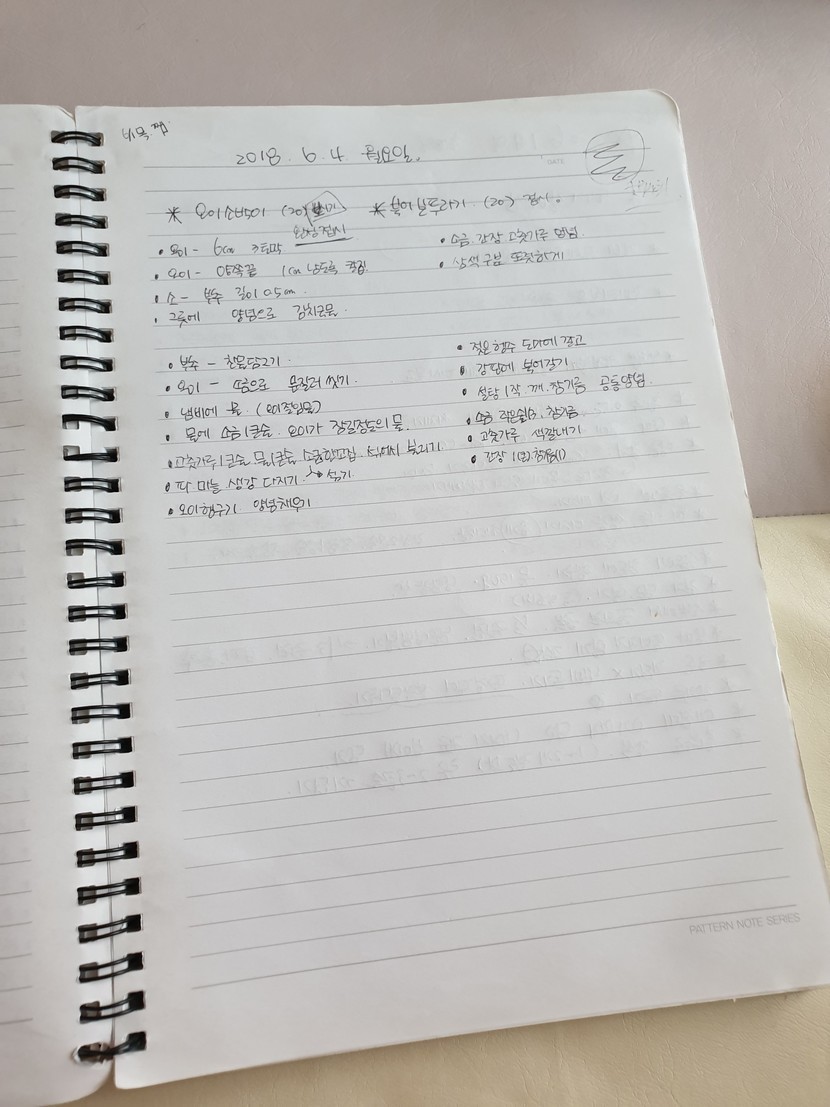 2018. 6. 4 월요일.
DATE
* 오이소박이 (20)
완성접시
* 북어보푸라기 (20) 접시.
• 오이 - 6cm 3토막
• 오이 - 양쪽끝 1cm 남도록 칼집
• 소 - 부추 길이 0.5cm.
• 그릇에 양념으로 김치국물.
• 소금. 간장. 고춧가루 양념.
• 삼색구분 또렷하게
• 부추 - 찬물담그기.
• 오이 - 소금으로 문질러 씻기.
• 냄비에 물. (오이절임물)
• 물에 소금1큰술. 오이가 잠길정도의 물.
• 고춧가루1큰술. 물1큰술 소금한꼬집. 섞어서 불리기
• 파. 마늘 생강 다지기. 섞기
• 오이헹구기. 양념채우기
• 젖은행주 도마에 깔고
• 강판에 북어갈기
• 설탕1작. 깨. 참기름 공통양념.
• 소금 작은술½. 참기름.
• 고춧가루 색깔내기
PATTERN NOTE SERIES